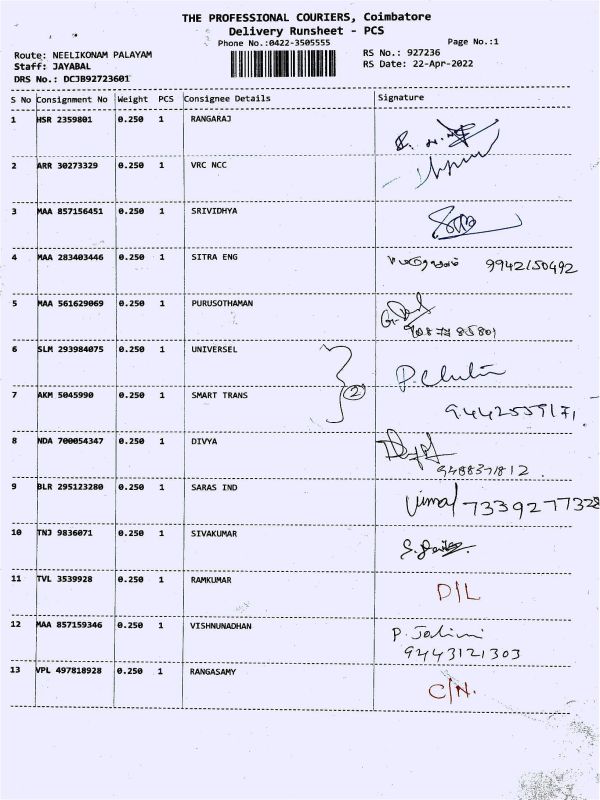 THE PROFESSIONAL COURIERS, Coimbatore
Delivery Runsheet - PCS
Phone No.:0422-3505555
Page No.:1
Route: NEELIKONAM PALAYAM
RS No.: 927236
Staff: JAYABAL
RS Date: 22-Apr-2022
DRS No.: DCJB92723601
S No Consignment No Weight PCS Consignee Details Signature
1 HSR 2359801 0.250 1 RANGARAJ
2 ARR 30273329 0.250 1 VRC NCC
3 MAA 857156451 0.250 1 SRIVIDHYA
4 MAA 283403446 0.250 1 SITRA ENG 9942150492
5 MAA 561629069 0.250 1 PURUSOTHAMAN
6 SLM 293984075 0.250 1 UNIVERSEL
7 AKM 5045990 0.250 1 SMART TRANS 2 9442559171
8 NDA 700054347 0.250 1 DIVYA
9488371812
9 BLR 295123280 0.250 1 SARAS IND Vimal 7339277328
10 TNJ 9836071 0.250 1 SIVAKUMAR
11 TVL 3539928 0.250 1 RAMKUMAR D/L
12 MAA 857159346 0.250 1 VISHNUNADHAN P. Jalini
9443121303
13 VPL 497818928 0.250 1 RANGASAMY C/N.